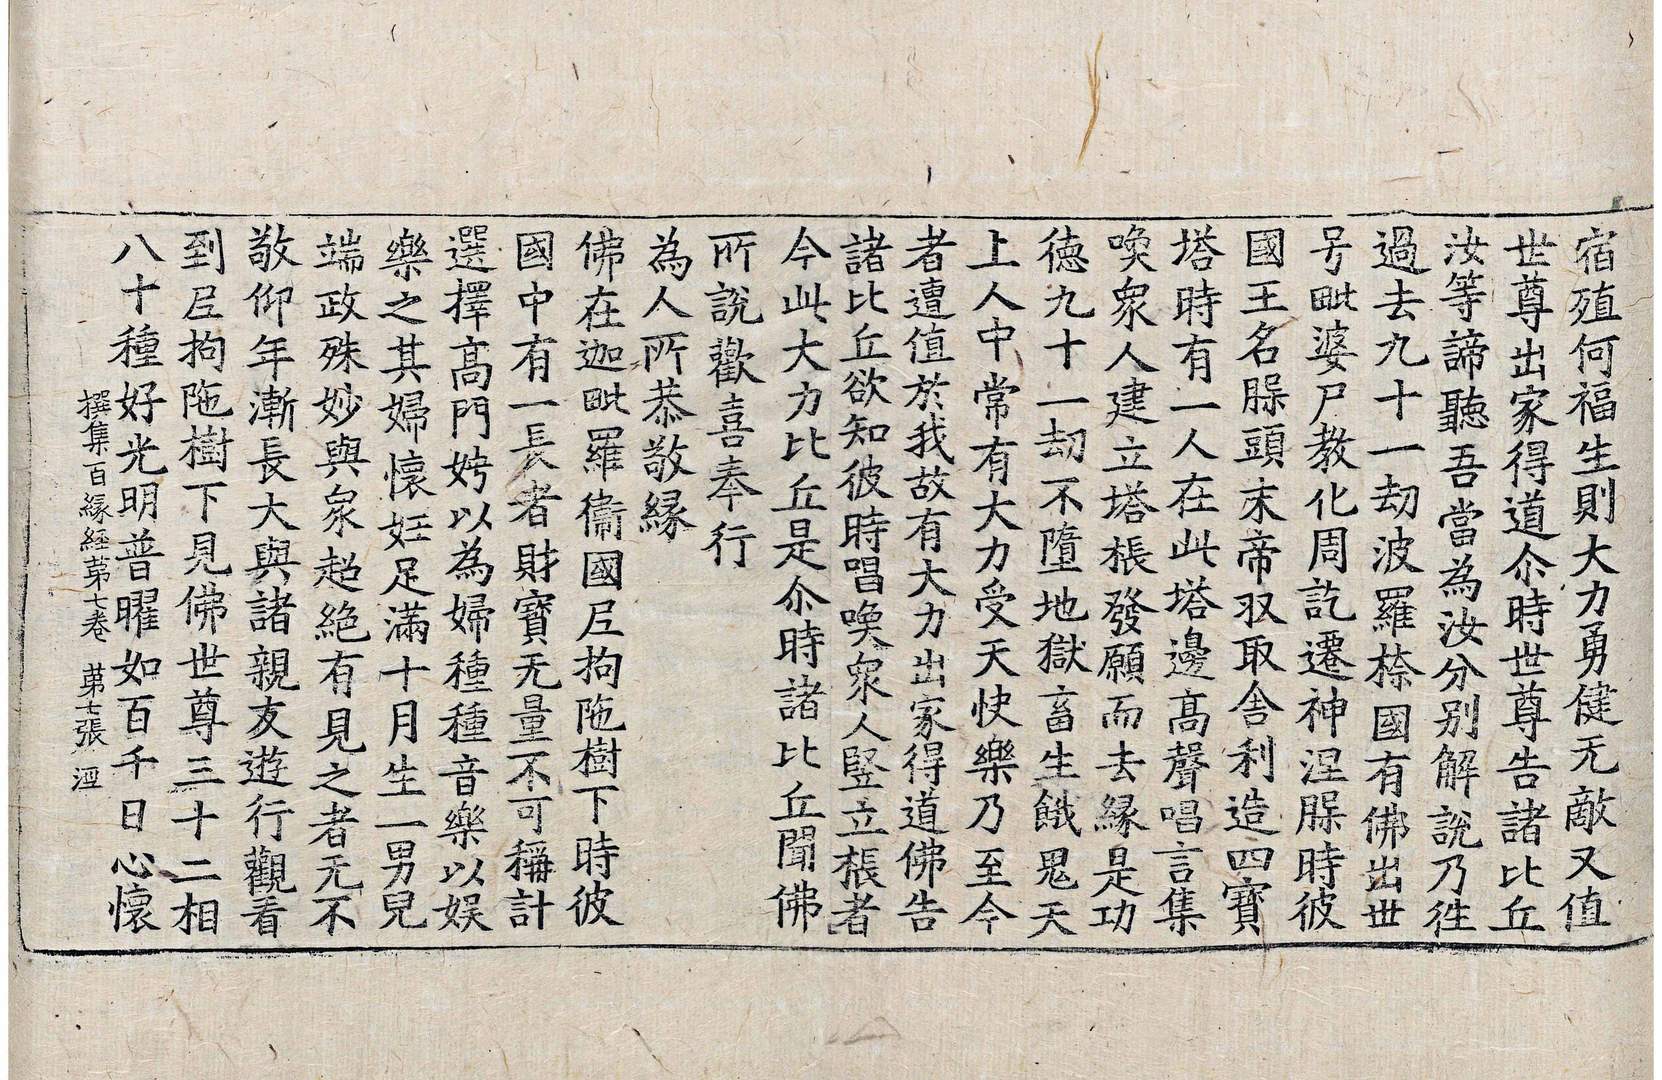 宿殖何福生則大力勇健无敵又值
世尊出家得道尒時世尊告諸比丘
汝等諦聽吾當為汝分別解說乃徃
過去九十一劫波羅㮈國有佛出世
号毗婆尸教化周訖遷神涅槃時彼
國王名槃頭末帝収取舍利造四寶
塔時有一人在此塔邊高聲唱言集
喚衆人建立塔棖發願而去縁是功
德九十一劫不墮地獄畜生餓鬼天
上人中常有大力受天快樂乃至今
者遭值於我故有大力出家得道佛告
諸比丘欲知彼時唱喚衆人竪立棖者
今此大力比丘是尒時諸比丘聞佛
所說歡喜奉行
為人所恭敬縁
佛在迦毗羅衞國尼拘陁樹下時彼
國中有一長者財寶无量不可稱計
選擇高門娉以為婦種種音樂以娛
樂之其婦懷妊足滿十月生一男兒
端政殊妙與衆超絶有見之者无不
敬仰年漸長大與諸親友遊行觀看
到尼拘陁樹下見佛世尊三十二相
八十種好光明普曜如百千日心懷
撰集百緣經第七卷 第七張 㴒